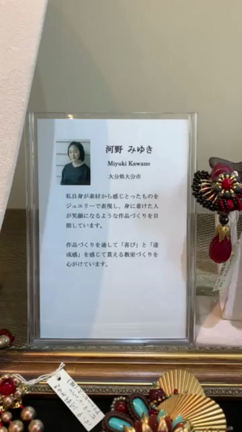 河野 みゆき
Miyuki Kawano
大分県大分市
私自身が素材から感じとったものを
ジュエリーで表現し、身に着けた人
が笑顔になるような作品づくりを目
指しています。
作品づくりを通して「喜び」と「達
成感」を感じて貰える教室づくりを
心がけています。